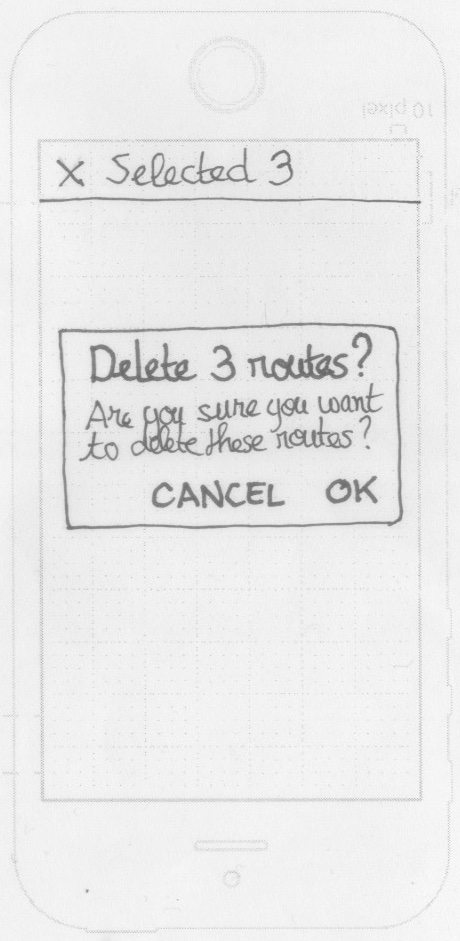 10 pixel
X Selected 3
Delete 3 routes?
Are you sure you want
to delete these routes?
CANCEL OK